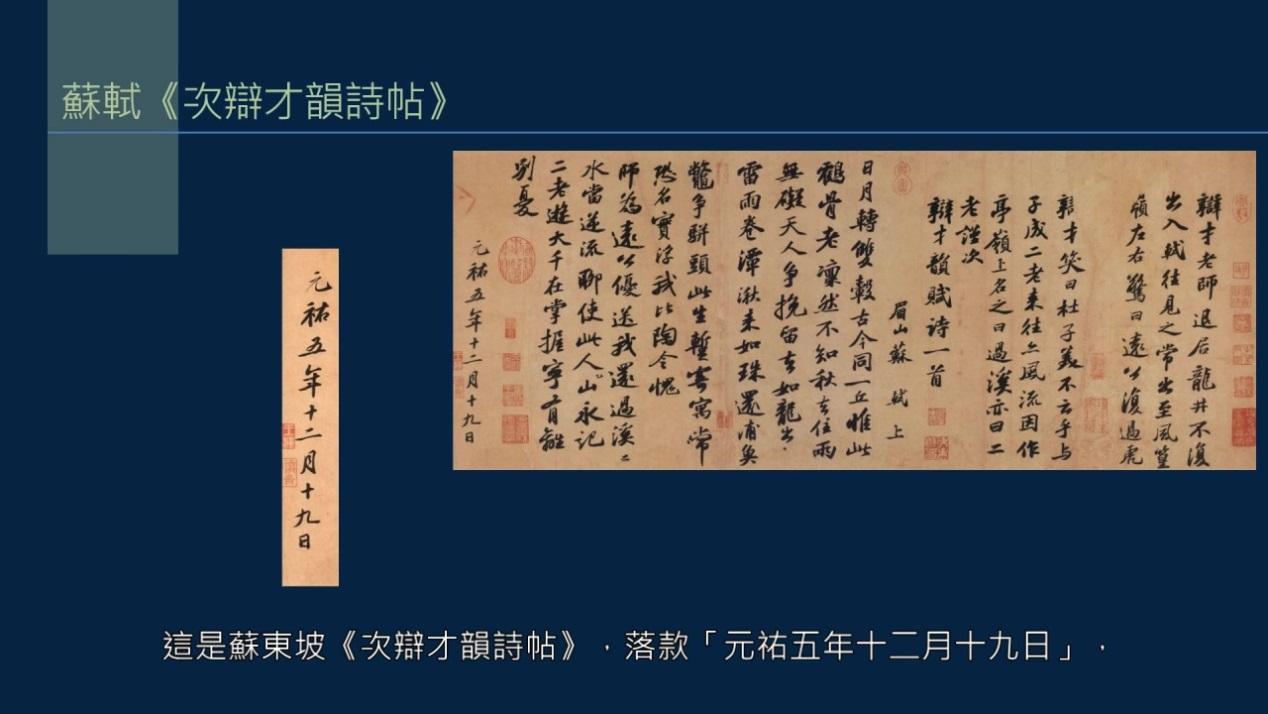 蘇軾《次辯才韻詩帖》
辯才老師退居龍井不復
出入軾往見之常出至風篁
嶺左右驚曰遠公復過虎
辯才笑曰杜子美不云乎與
子成二老来往亦風流因作
亭嶺上名之曰過溪亦曰二
老謹次
辯才韻賦詩一首
眉山蘇軾上
日月轉雙轂古今同一丘惟此
鶴骨老凜然不知秋去住兩
無礙天人爭挽留去如龍出
雷雨卷潭湫来如珠還浦魚
鼈爭駢頭此生蹔寄寓常
恐名實浮我比陶令愧
師為遠公優送我還過溪〻
水當逆流聊使此人山永記
二老遊大千在掌握寧有離
別憂
元祐五年十二月十九日
元祐五年十二月十九日
這是蘇東坡《次辯才韻詩帖》，落款「元祐五年十二月十九日」，